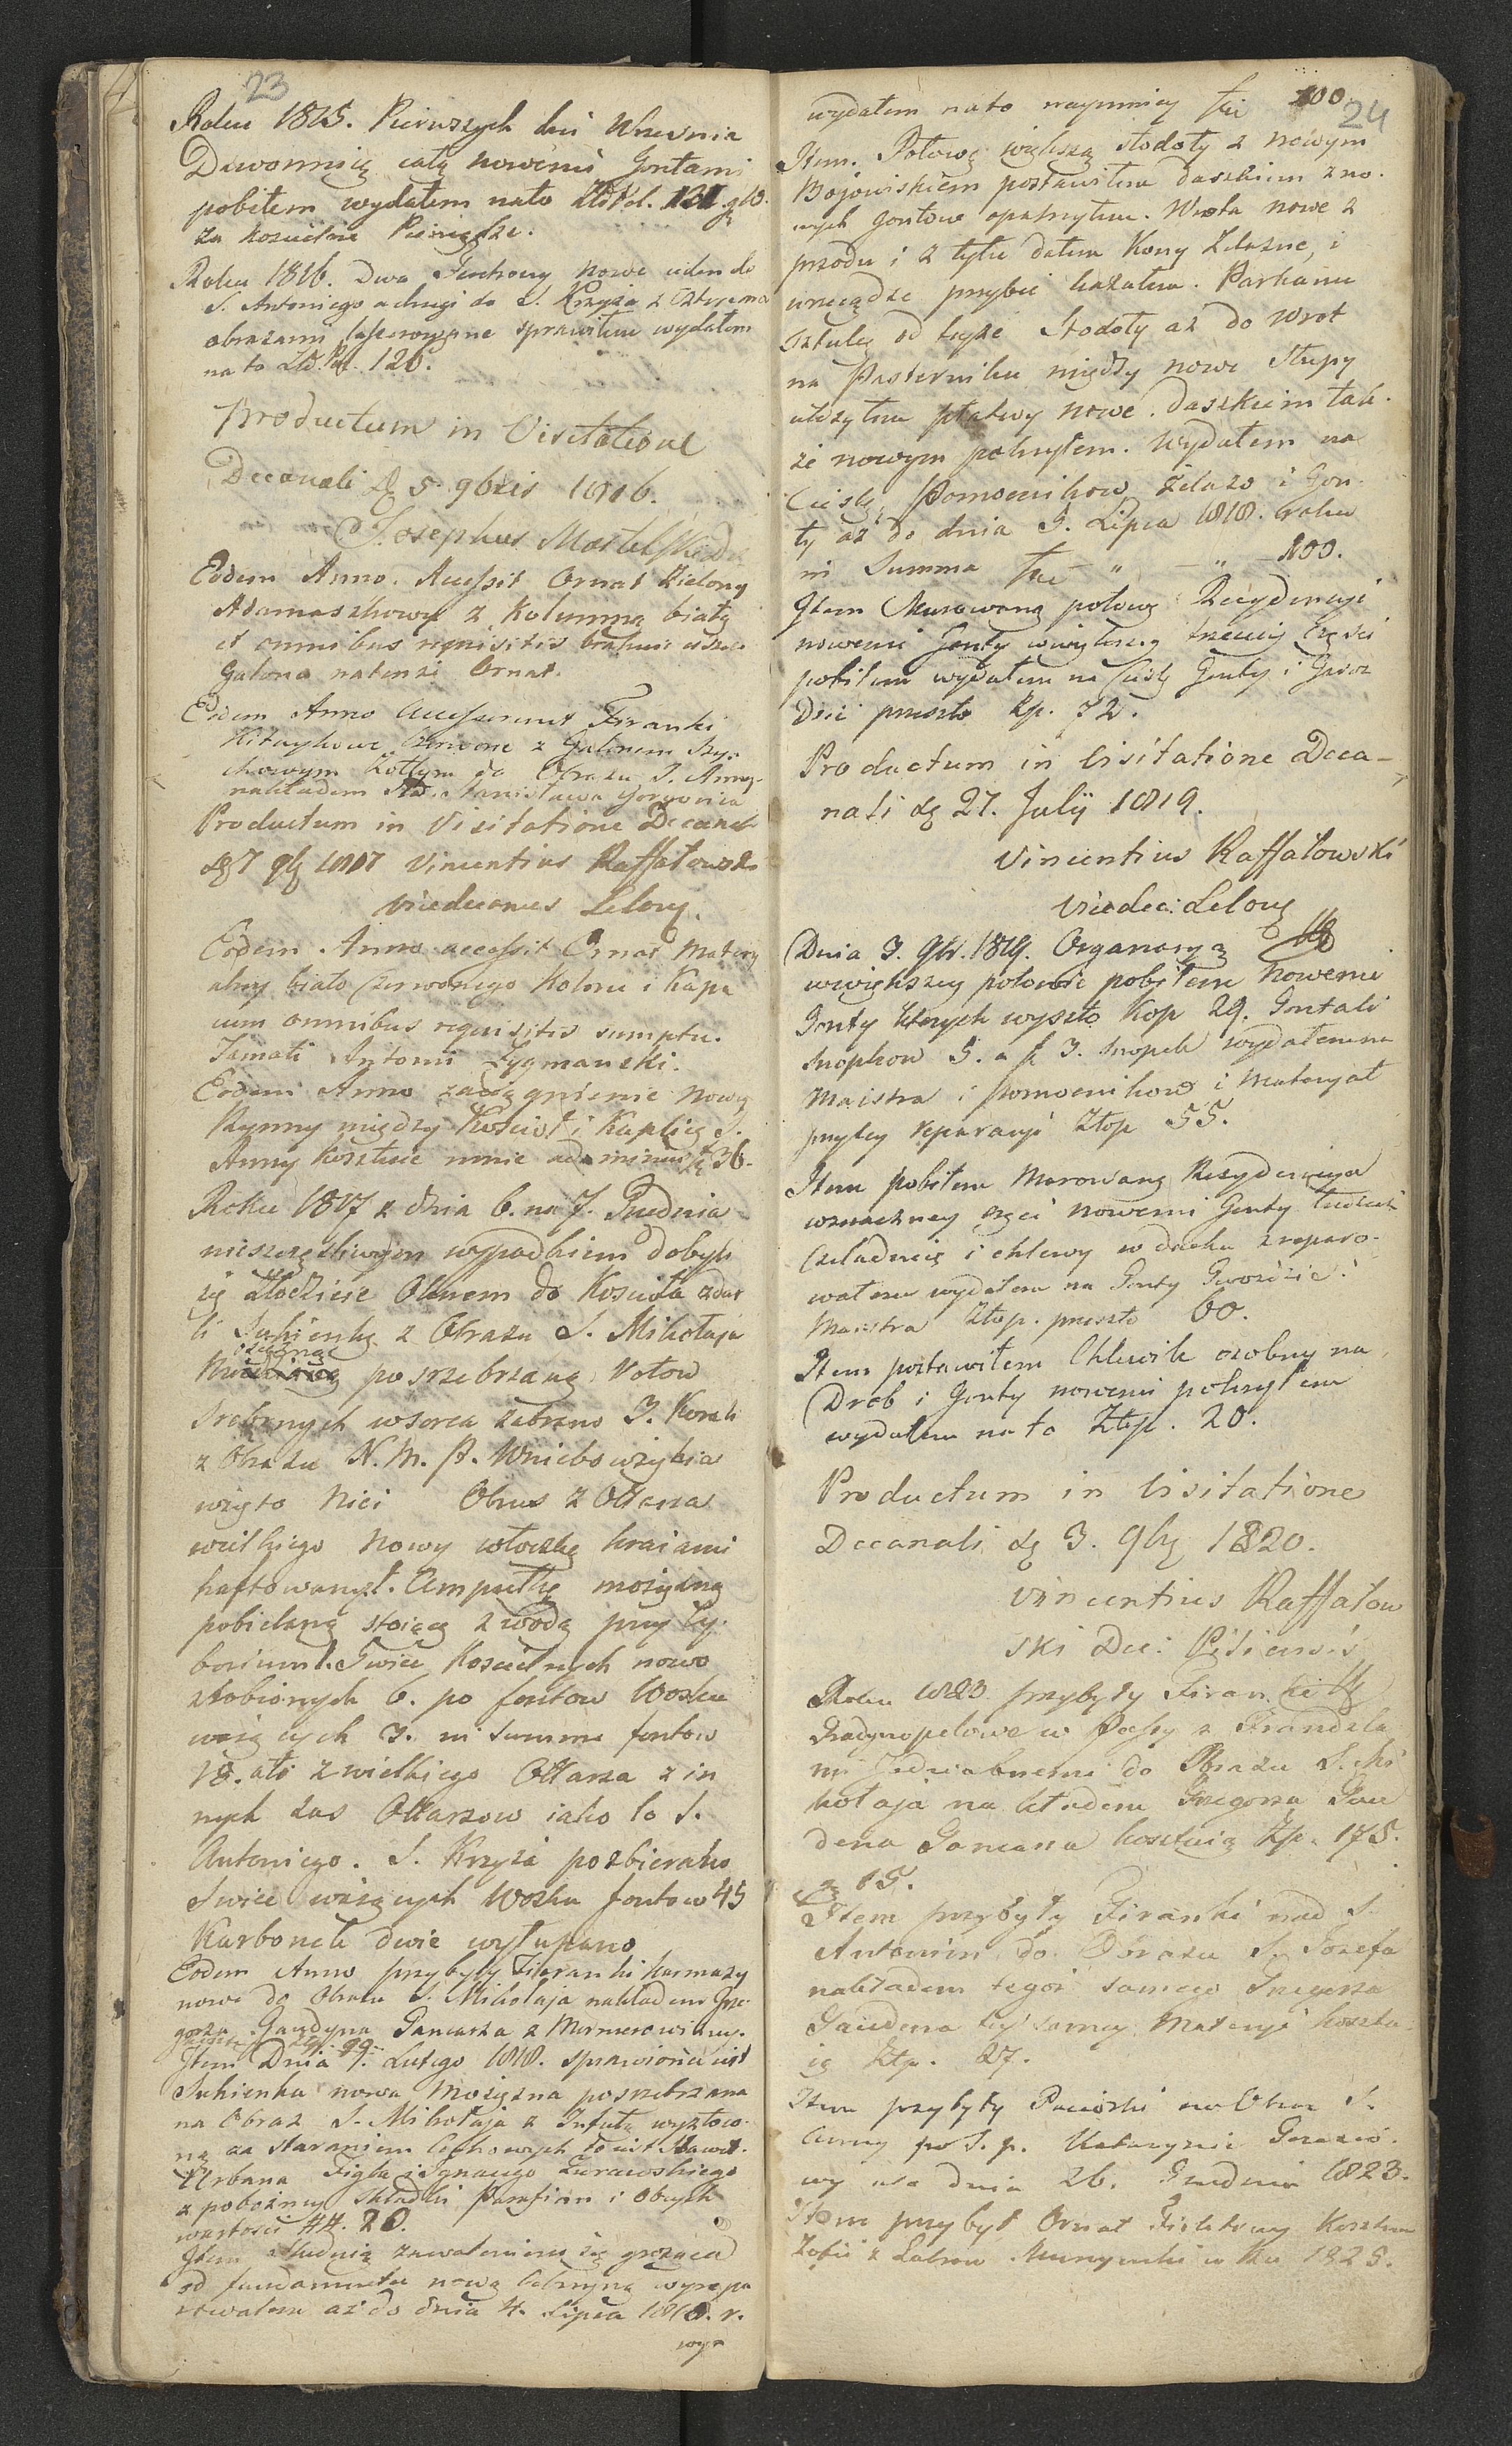 23
Roku 1815. Pierwszych dni Wrzesnia
Dzwonnicę całą nowemi Gontami
pobiłem wydałem nato Złł Pol. 131. g 10.
za kościelne Pieniądze.
Roku 1816. Dwa Fuchony nowe ieden do
S. Antoniego a drugi do S. Krzyża z czterema
obrazami sprawiłem wydałem
na to Złł. Pol. 126.
Productum in Visitatione
Decanali d 5 9bris 1816.
Josephus
Eodem Anno. Accessit Ornat Zielony
Adamaszkowy z Kolumną białą
et omnibus requisitis
Galona natenże Ornat.
Eodem Anno Accesserunt Firanki
Kitaykowe Czerwone z Galonem Szy-
chowym żołtym do Obrazu S. Anny
nakładem Sławe. Stanisława
Productum in Visitatione Decanali
d 7 9b 1817 Vincentius Raffałowski
Vicedecanus Lelov.
Eodem Anno accessit Ornat Matery
alny biało Czerwonego Koloru i Kapa
cum omnibus requisitis sumptu
Famati Antoni Zygmanski.
Eodem Anno zaciągnienie nowy
Rynny między Kosciół i Kaplicę S.
Anny kosztuie mnie ad minus f 36.
Roku 1817 z dnia 6. na 7. Grudnia
nieszczęśliwym wypadkiem dobyli
się złodzieie Oknem do Kościoła zdar
li Sukienkę z Obrazu S. Mikołaja
mosiężną posrzebrzaną Wotow
srebrnych wsercа zabrano 3. Korali
z Obrazu N. M. P. Wniebowzięcia
wzięto Nici Obrus z Ołtarza
wielkiego nowy włoczką kraiami
haftowany 1. Ampułkę mosiężną
pobielaną stoiącą z wodą przy Cy-
borium 1. Swiec Kościelnych nowo
zrobionych 6. po fontow Wosku
ważących 3. in summa fontow
18. ato z wielkiego Ołtarza z in
nych zas Ołtarzow iako to S.
Antoniego. S. Krzyża pozbierano
Swiec ważących Wosku fontow 45
Karbonek dwie wyłupano
Eodem Anno przybyły Firanki karmazy
nowe do Obrazu S. Mikołaja nakładem Grze-
gorza Gaudyna Garncarza z
Item Dnia 1. Lutego 1818. sprawiona iest
Sukienka nowa Mosiężna posrebrzana
na Obraz S. Mikołaja z Infułą wyzłoco-
ną za staraniem Cechowych to iest Sławet.
Urbana Figla i Ignacego Zurawskiego
z pobożney składki Parafian i Obcych
wartości ##. 20.
Item Studnią zawaleniem się grożącą
od fundamentu nową wyrepa
rowałem aż do dnia 4. Lipca 1818. r.
wyd
24
wydałem nato naymniey f 100.
Item. Połowę większą stodoły z nowym
Bojowiskiem postawiłem daszkiem z no-
wych gontow opatrzyłem. Wrota nowe z
przodu i z tyłu dałem Kony Żelazne, i
wrzeciądze przybić kazałem. Parkanu
sztukę od teyże Stodoły aż do Wrot
na Pasterniku między nowe Słupy
ułożyłem płatwy nowe. daszkiem tak-
że nowym pokryłem. Wydałem na
Cieslę, Pomocnikow, żelazo i Gon-
ty aż do dnia 5. Lipca 1818. roku
in Summa f " " 100.
Item Murowaną połowę Rezydencyi
nowemi Gonty większey trzeciey Części
pobiłem wydałem na Cieslę Gonty i Gwoz
dzie przeszło Zp. 72.
Productum in Visitatione Deca-
nali d 27. Julij 1819.
Vincentius Raffałowski
Vicedec: Lelov
Dnia 3. 9br. 1819. Organaryą
wwiększey połowie pobiłem nowemi
Gonty ktorych wyszło Kop 29. Gontali
snopkow 5. a f 3. snopek wydałem na
Maistra i pomocnikow i Materyał
przytey reparacyi Złop 55.
Item pobiłem Murowaną Rezydencyą
wznaczney częsci nowemi Gonty tudzież
Czeladnią i chlewy w dachu zreparo-
wałem wydałem na Gonty Gwoździe i
Maistra Złop. przeszło 60.
Item postawiłem Chlewik osobny na
Drob i Gonty nowemi pokryłem
wydałem nato Złp. 20.
Productum in Visitatione
Decanali d 3. 9b 1820.
Vincentius Raffałow
ski Dec: Pilicensis
Roku 1823 przybyły Firanki
Gradynopelowe w Passy z Frandzla
mi Jedwabnemi do Obrazu S. Mi
kołaja nakładem Grzegorza Gau
dena Garncarza kosztuią Zp. 175.
g 15.
Item przybyły Firanki nad S.
Antonim do Obrazu S. Jozefa
nakładem tegoż samego Grzegorza
Gaudena tey samey Materyi kosztu-
ią Złp. 27.
Item przybyły Paciorki na Obraz S.
Anny po S. p. Katarzynie
wy dnia 26. Grudnia 1823.
Item przybył Ornat Fioletowy Kosztem
Zofii z w Rku 1825.